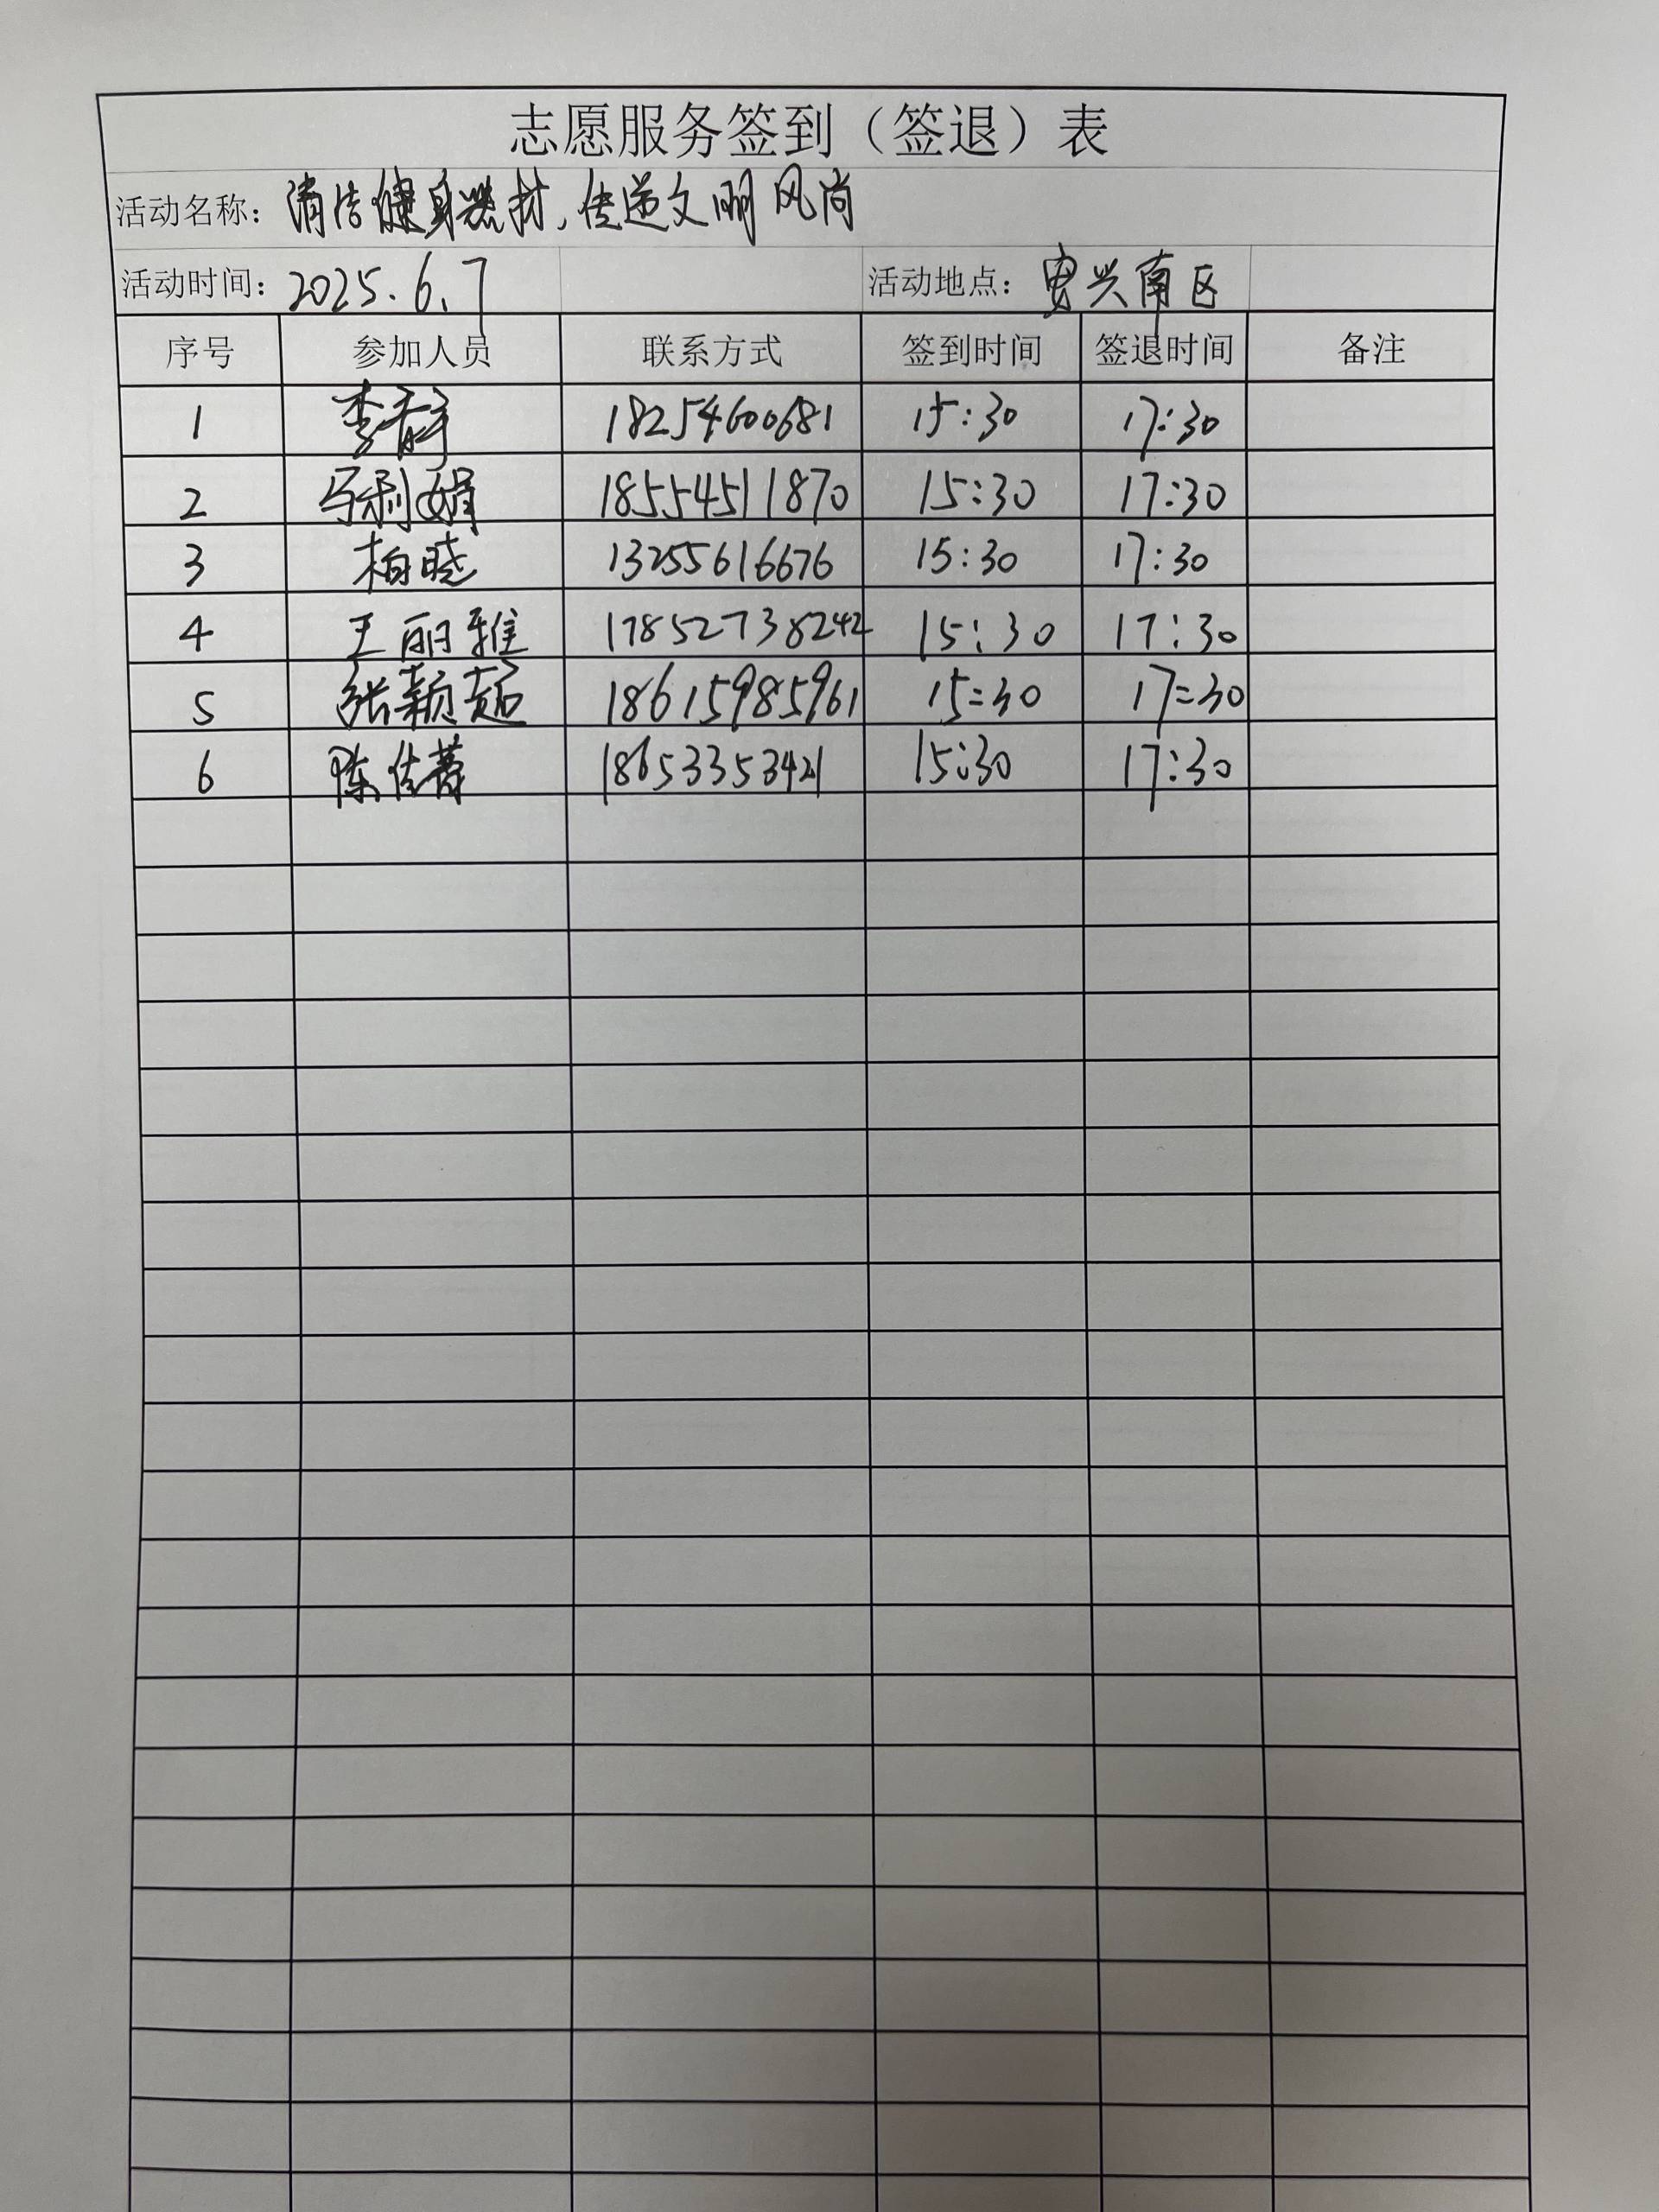 志愿服务签到（签退）表
活动名称：清洁健身器材，传递文明风尚
活动时间：2025.6.7 活动地点：兴南区
序号 参加人员 联系方式 签到时间 签退时间 备注
1 李静 18254600681 15:30 17:30
2 马利娟 18554511870 15:30 17:30
3 柏晓 13255616676 15:30 17:30
4 王丽雅 17852738242 15:30 17:30
5 张颖超 18615985961 15=30 17=30
6 陈佳蕾 18653353421 15:30 17:30